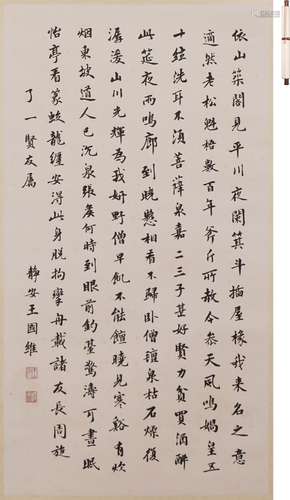 依山築閣見平川夜闌箕斗插屋椽我來名之意
適然老松魁梧數百年斧斤所赦今參天風鳴媧皇五
十絃洗耳不須菩薩泉嘉二三子甚好賢力貧買酒醉
此筵夜雨鳴廊到曉懸相看不歸臥僧氈泉枯石燥復
潺湲山川光輝為我妍野僧早飢不能饘曉見寒谿有炊
烟東坡道人已沉泉張侯何時到眼前釣臺驚濤可晝眠
怡亭看篆蛟龍纏安得此身脫拘攣舟載諸友長周旋
了一賢友屬
靜安王國維